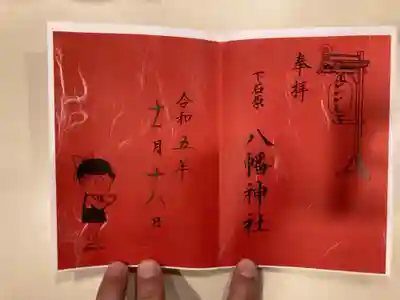 奉拝
下石原
八幡神社
令和五年
十一月十八日